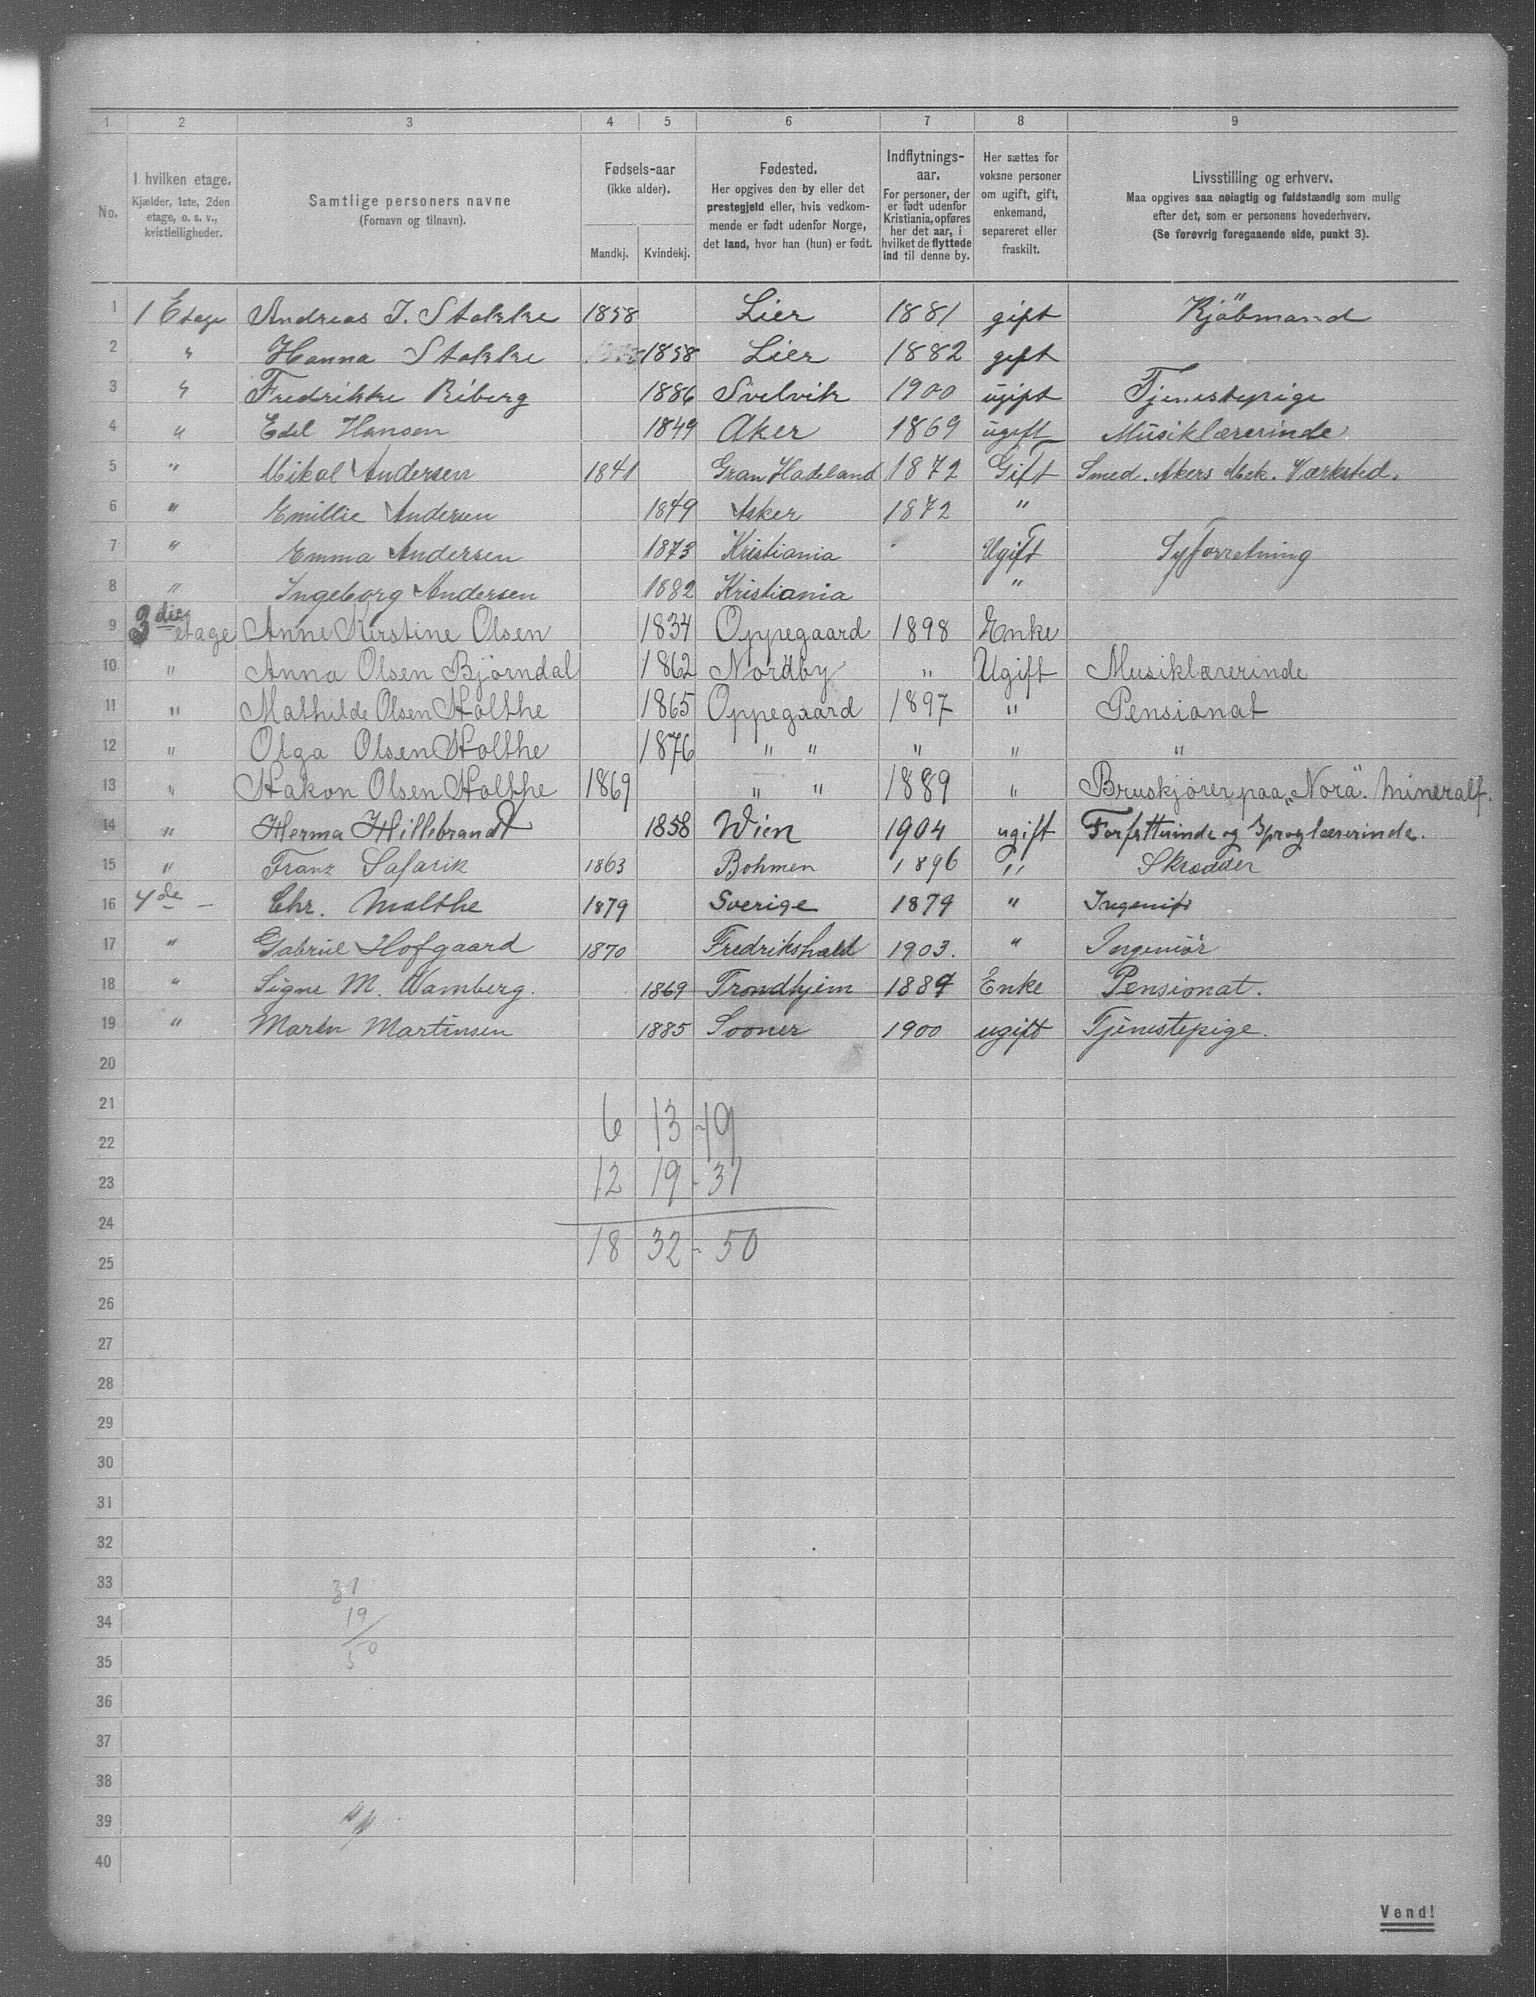 1 2 3 4 5 6 7 8 9
No. I hvilken etage. Kjælder, 1ste, 2den etage, o. s. v., kvistleiligheder. Samtlige personers navne (Fornavn og tilnavn). Fødsels-aar (ikke alder). Mandkj. Kvindekj. Fødested. Her opgives den by eller det prestegjeld eller, hvis vedkommende er født udenfor Norge, det land, hvor han (hun) er født. Indflytnings-aar. For personer, der er født udenfor Kristiania, opføres her det aar, i hvilket de flyttede ind til denne by. Her sættes for voksne personer om ugift, gift, enkemand, separeret eller fraskilt. Livsstilling og erhverv. Maa opgives saa nøiagtig og fuldstændig som mulig efter det, som er personens hovederhverv. (Se forøvrig foregaaende side, punkt 3).
1 1 Etage Andreas J. Stokke 1858 Lier 1881 gift Kjöbmand
2 " Hanna Stokke 1858 Lier 1882 gift
3 " Fredrikke Riberg 1886 Svelvik 1900 ugift Tjenestepige
4 " Edel Hansen 1849 Aker 1869 ugift Musiklærerinde
5 " Mikal Andersen 1841 Gran Hadeland 1872 Gift Smed. Akers Mek. Værksted.
6 " Emillie Andersen 1849 Asker 1872 "
7 " Emma Andersen 1873 Kristiania Ugift Syforretning
8 " Ingeborg Andersen 1882 Kristiania "
9 3die etage Anne Kerstine Olsen 1834 Oppegaard 1898 Enke
10 " Anna Olsen Bjørndal 1862 Nordby " Ugift Musiklærerinde
11 " Mathilde Olsen Holthe 1865 Oppegaard 1897 " Pensionat
12 " Olga Olsen Holthe 1876 " " " " "
13 " Hakon Olsen Holthe 1869 " " 1889 " Bruskjører paa "Nora". Mineralf.
14 " Herma Hillebrandt 1858 Wien 1904 ugift Forfatterinde og Sproglærerinde.
15 " Franz Safarik 1863 Bohmen 1896 " Skrædder
16 4de - Chr. Malthe 1879 Sverige 1879 " Ingeniør
17 " Gabriel Hofgaard 1870 Fredrikshald 1903. " Ingeniør
18 " Signe M. Wamberg. 1869 Trondhjem 1889 Enke Pensionat.
19 " Maren Martinsen 1885 Sooner 1900 ugift Tjenestepige.
20
21 6 13 - 19
22
23 12 19 - 31
24
25 18 32 - 50
26
27
28
29
30
31
32
33 31
34 19
35 50
36
37
38
39
40
Vend!